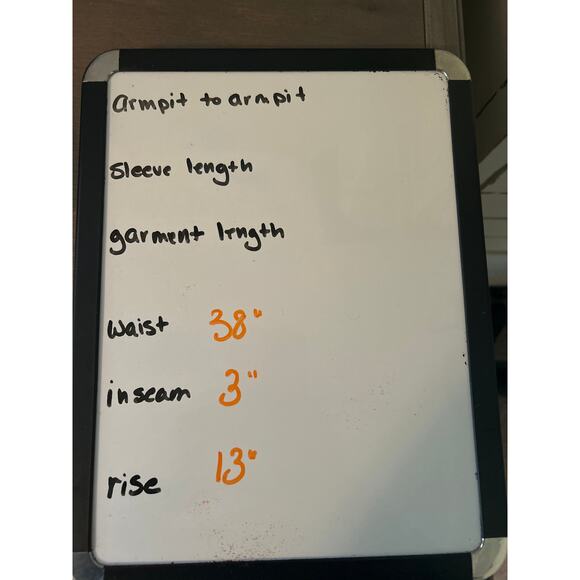 armpit to armpit
Sleeve length
garment length
Waist 38"
inseam 3"
rise 13"